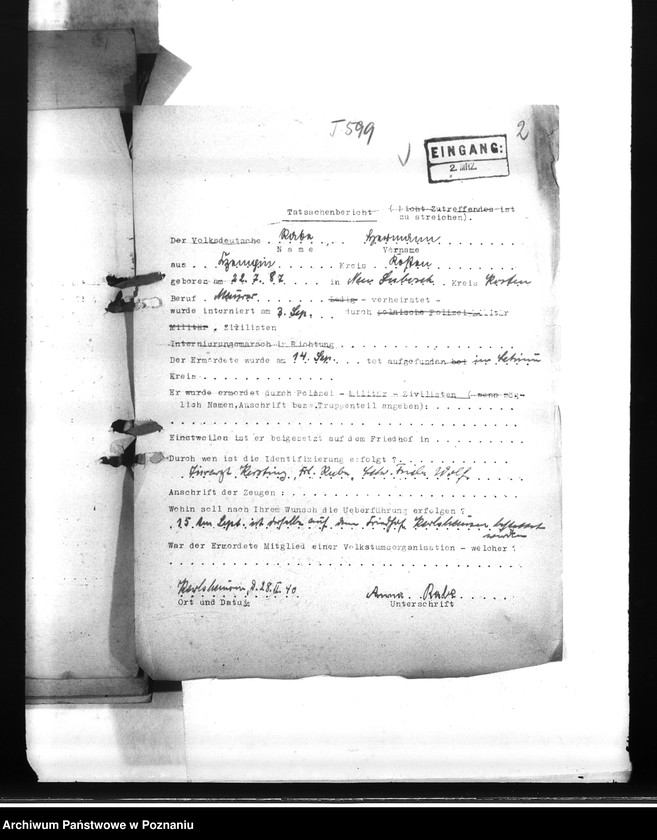 J 599
2
EINGANG:
2. MRZ.
Tatsachenbericht (Nicht Zutreffendes ist
zu streichen).
Der Volksdeutsche . Rabe . . . Hermann . . .
Name Vorname
aus . . . . Kreis . Kosten . . .
geboren am 22.7.87. . in Neu . Kreis Kosten
Beruf . Maurer . . . ledig - verheiratet -
wurde interniert am 3. Sep. . . durch polnische Polizei-Militär
Militär . Zivilisten
Internierungsmarsch in Richtung . . . . . . . . . . . . . .
Der Ermordete wurde am 14. Sep. . . . tot aufgefunden bei im
Kreis . . . . . . . . . . . . .
Er wurde ermordet durch Polizei - Militär - Zivilisten ( wenn mög-
lich Namen,Anschrift bezw.Truppenteil angeben): . . . . . . . .
. . . . . . . . . . . . . . . . . . . . . . . . . . . . . .
Einstweilen ist er beigesetzt auf dem Friedhof in . . . . . . .
Durch wen ist die Identifizierung erfolgt ? . . . . . . . . . .
Frl. Rabe, Wolf
Anschrift der Zeugen : . . . . . . . . . . . . . . . . . . . .
Wohin soll nach Ihrem Wunsch die Ueberführung erfolgen ?
. 15. Sept. ist derselbe auf dem Friedhof
worden
War der Ermordete Mitglied einer Volkstumsorganisation - welcher ?
. . . . . . . . . . . . . . . . . . . . . . . . . . . . . .
d. 28.II.40 Anna . Rabe . . . . .
Ort und Datum Unterschrift
Archiwum Państwowe w Poznaniu